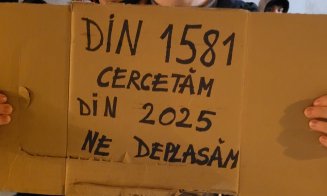 DIN 1581
CERCETĂM
DIN 2025
NE DEPLASĂM